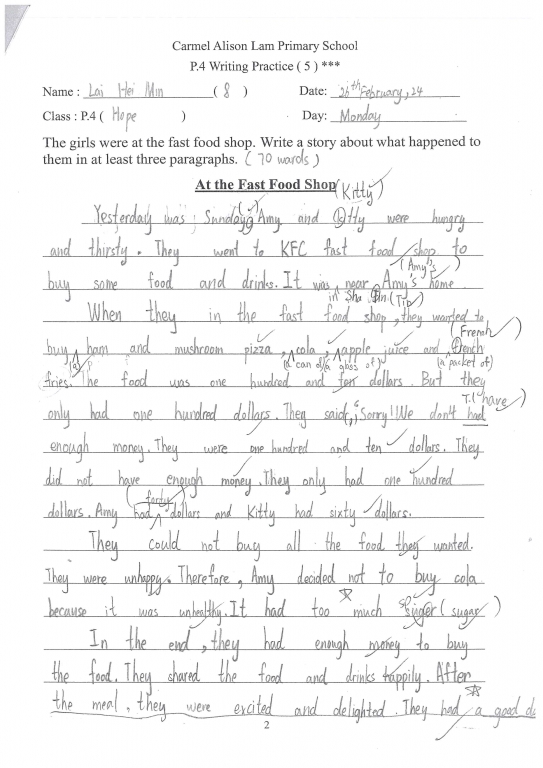 Carmel Alison Lam Primary School
P.4 Writing Practice ( 5 ) ***
Name : Lai Hei Min ( 8 ) Date: 26th February, 24
Class : P.4 ( Hope ) Day: Monday
The girls were at the fast food shop. Write a story about what happened to
them in at least three paragraphs. ( 70 words )
At the Fast Food Shop
(Kitty)
Yesterday was Sunday. Amy and Kitty were hungry
and thirsty. They went to KFC fast food shop to
(Amy's)
buy some food and drinks. It was near Amy's home
in Sha Tin (Tip)
When they in the fast food shop, they wanted to
(French)
buy ham and mushroom pizza, cola, apple juice and french
(a) (a can of) (a glass of) (a packet of)
fries. The food was one hundred and ten dollars. But they
T. (have)
only had one hundred dollars. They said, "Sorry! We don't had
enough money. They were one hundred and ten dollars. They
did not have enough money. They only had one hundred
(forty)
dollars. Amy had dollars and Kitty had sixty dollars.
They could not buy all the food they wanted.
They were unhappy. Therefore, Amy decided not to buy cola
because it was unhealthy. It had too much suger (sugar)
sp
In the end, they had enough money to buy
the food. They shared the food and drinks happily. After
the meal, they were excited and delighted. They had a good
2